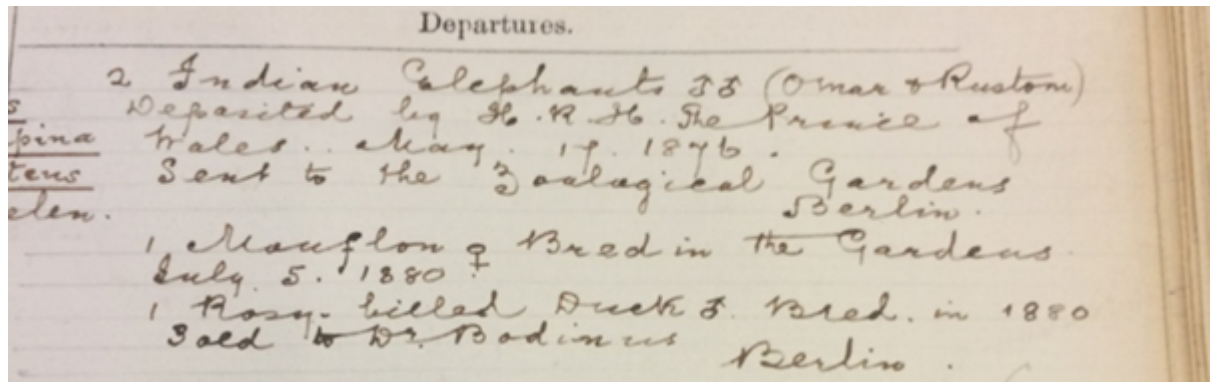 Departures.
2 Indian Elephants ♂♂ (Omar & Rustom)
s
Deposited by H.R.H. The Prince of
pina
Wales.. May. 17. 1876.
teus
Sent to the Zoological Gardens
elen.
Berlin.
1 Mouflon ♀ Bred in the Gardens
July. 5. 1880.
1 Rosy-billed Duck ♂. Bred. in 1880
Sold to Dr. Bodinus
Berlin.